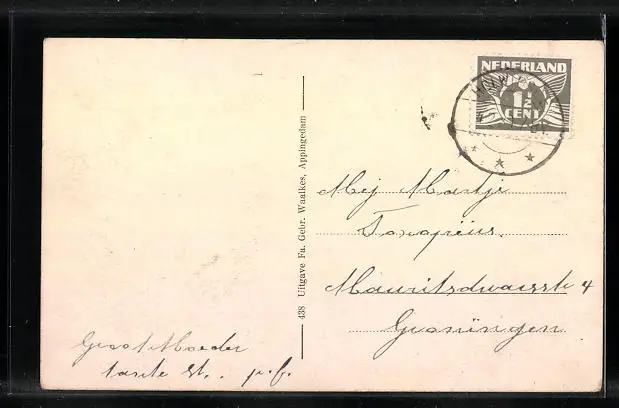 NEDERLAND
1½
CENT
438 Uitgave Fa. Gebr. Waalkes, Appingedam
Mej Martje
Mauritsdwarsstr 4
Groningen
Groot Moeder
tante St. p.f.